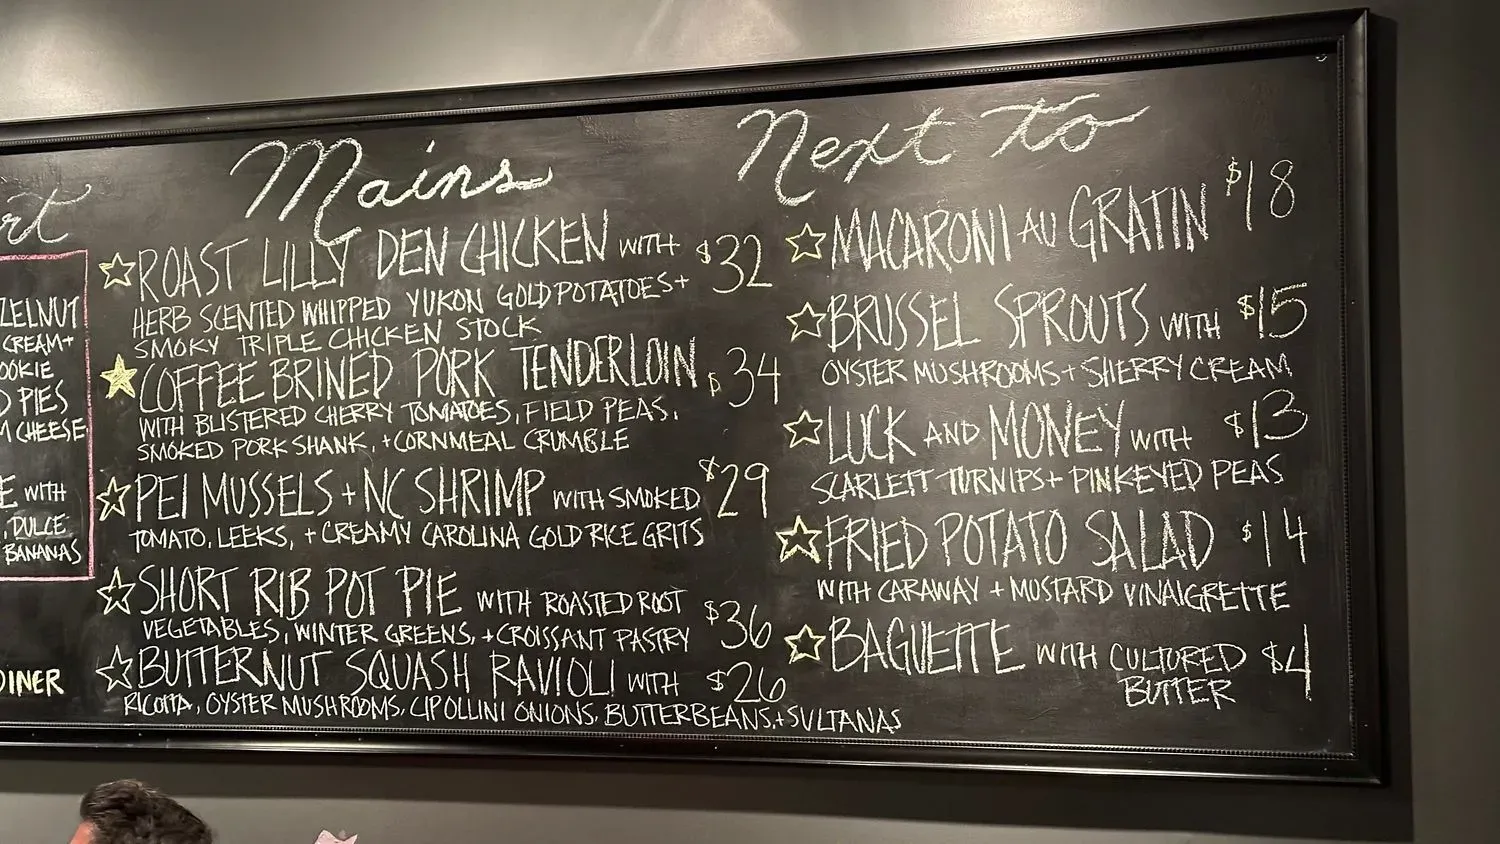 rt
ZELNUT
CREAM+
OOKIE
PIES
CHEESE
E WITH
, DULCE
BANANAS
DINER
Mains
ROAST LILLY DEN CHICKEN WITH $32
HERB SCENTED WHIPPED YUKON GOLD POTATOES +
SMOKY TRIPLE CHICKEN STOCK
COFFEE BRINED PORK TENDERLOIN $34
WITH BLISTERED CHERRY TOMATOES, FIELD PEAS,
SMOKED PORK SHANK, + CORNMEAL CRUMBLE
PEI MUSSELS + NC SHRIMP WITH SMOKED $29
TOMATO, LEEKS, + CREAMY CAROLINA GOLD RICE GRITS
SHORT RIB POT PIE WITH ROASTED ROOT $36
VEGETABLES, WINTER GREENS, + CROISSANT PASTRY
BUTTERNUT SQUASH RAVIOLI WITH $26
RICOTTA, OYSTER MUSHROOMS, CIPOLLINI ONIONS, BUTTERBEANS, + SULTANAS
Next to
MACARONI AU GRATIN $18
BRUSSEL SPROUTS WITH $15
OYSTER MUSHROOMS + SHERRY CREAM
LUCK AND MONEY WITH $13
SCARLETT TURNIPS + PINKEYED PEAS
FRIED POTATO SALAD $14
WITH CARAWAY + MUSTARD VINAIGRETTE
BAGUETTE WITH CULTURED $4
BUTTER